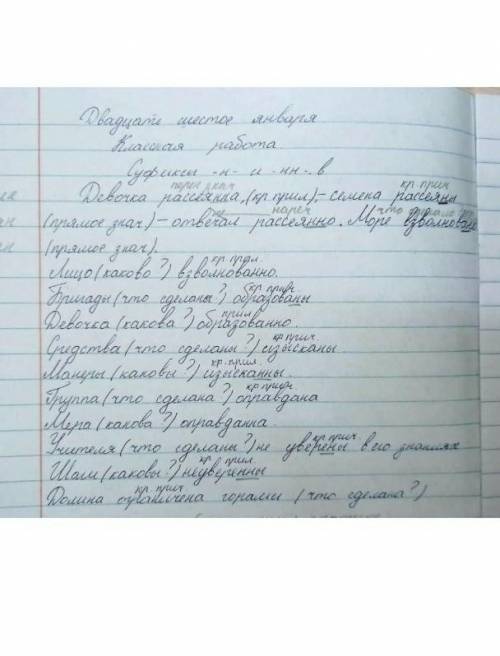 Двадцать шестое января
Классная работа
Суфиксы -н- и -нн- в
перен знач кр. прич
Девочка рассеянна, (кр прил), - семена рассеяны
нареч что сделало
(прямое знач) - отвечал рассеянно. Море взволновано
(прямое знач).
кр. прил.
Лицо (каково?) взволнованно.
кр. прич
Бригады (что сделаны?) образованы
прил
Девочка (какова?) образованно.
кр прич
Средства (что сделаны?) изысканы
кр. прил.
Манеры (каковы?) изысканны.
кр прич
Группа (что сделана?) оправдана
Мера (какова?) оправданна.
кр прич
Учителя (что сделаны?) не уверены в его знаниях
кр прил.
Шаги (каковы?) неуверенны
кр прич
Долина ограничена горами (что сделана?)